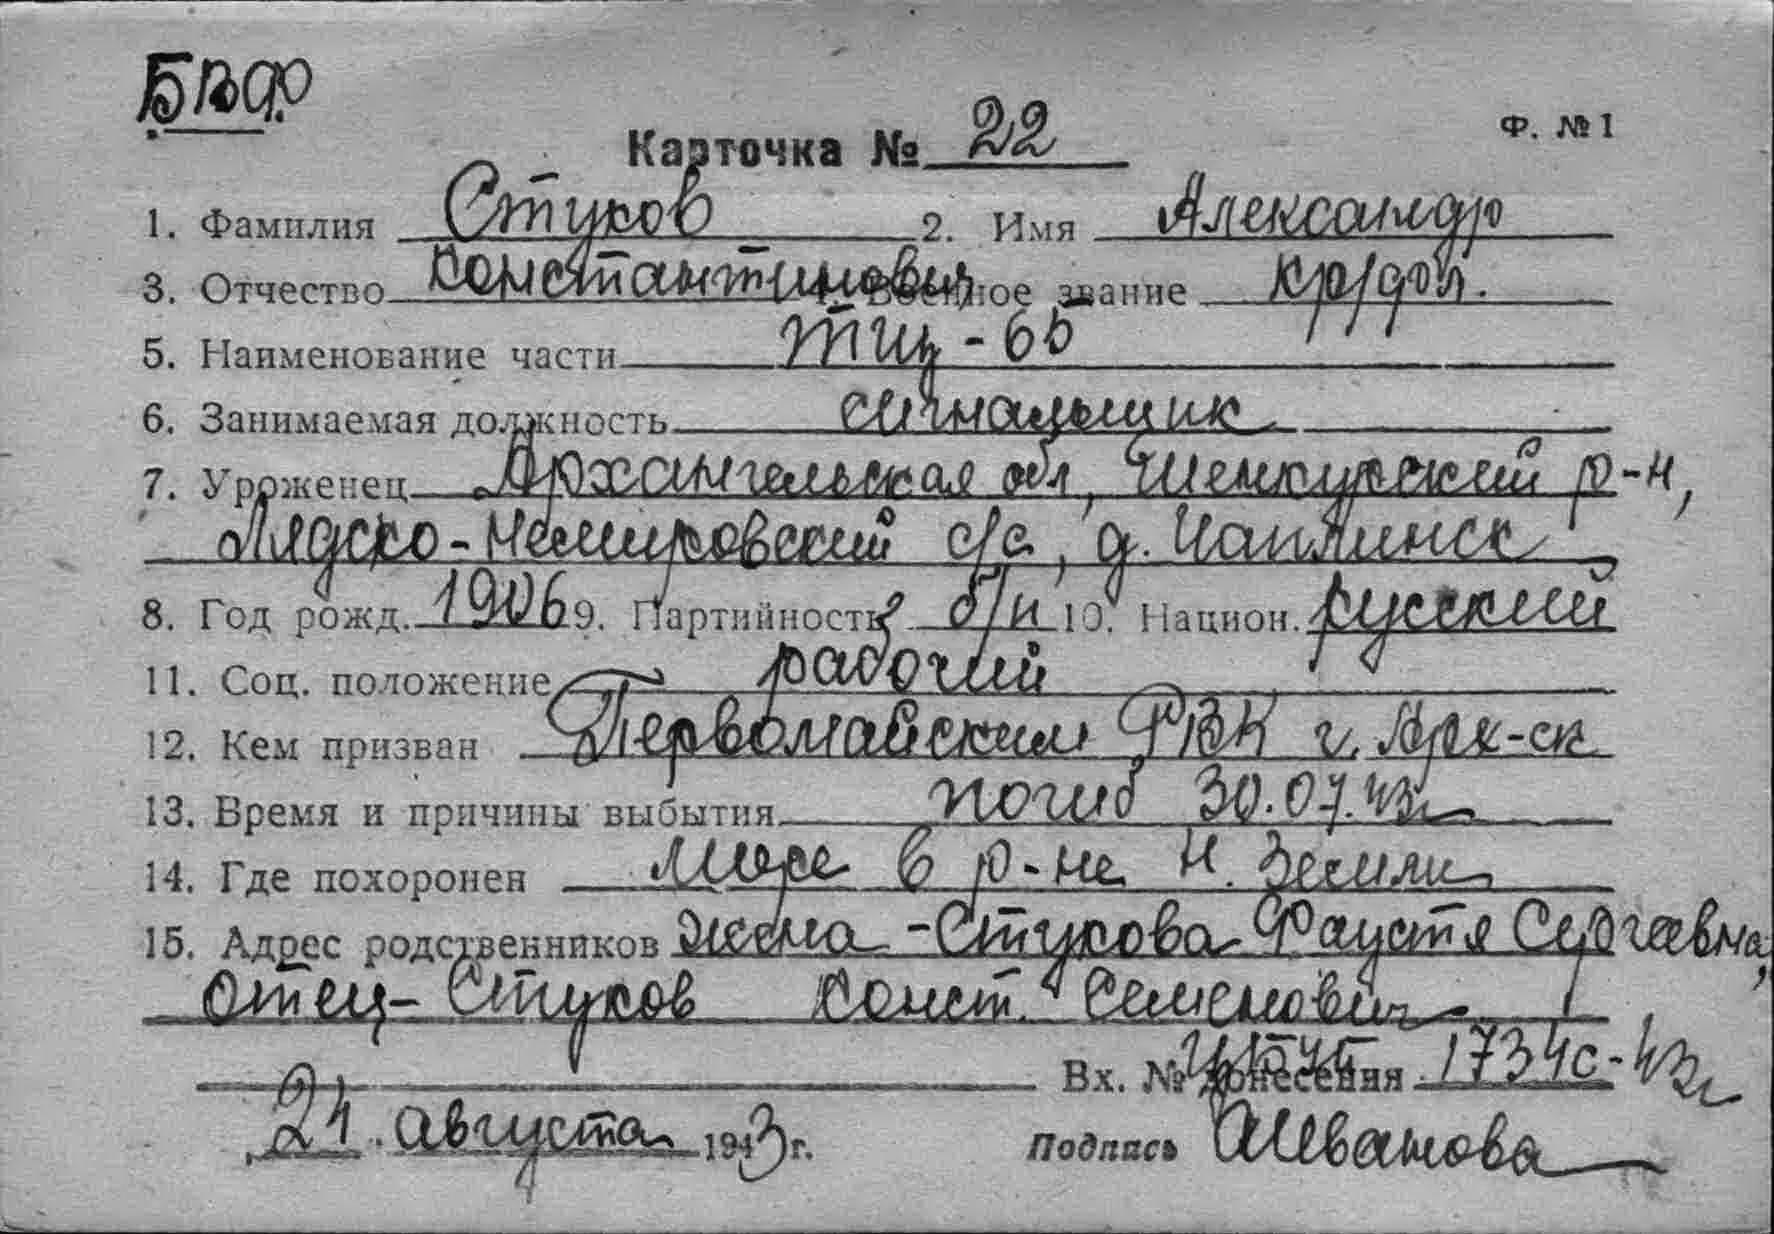 БВФ
Карточка № 22 Ф. № 1
1. Фамилия Стуков 2. Имя Александр
3. Отчество Константинович Военное звание кр/фл.
5. Наименование части ТЩ-65
6. Занимаемая должность сигнальщик
7. Уроженец Архангельская обл, Шенкурский р-н,
Лядско- с/с, д.
8. Год рожд. 1906 9. Партийность б/п 10. Национ. русский
11. Соц. положение рабочий
12. Кем призван Первомайским РВК г. Арх-ск
13. Время и причины выбытия погиб 30.07.43г
14. Где похоронен море в р-не Н. Земли
15. Адрес родственников жена - Стукова Фаустя Сергеевна,
отец - Стуков Конст. Семенович
Вх. № донесения 1734с-43г
21 августа 1943 г. Подпись АИванова